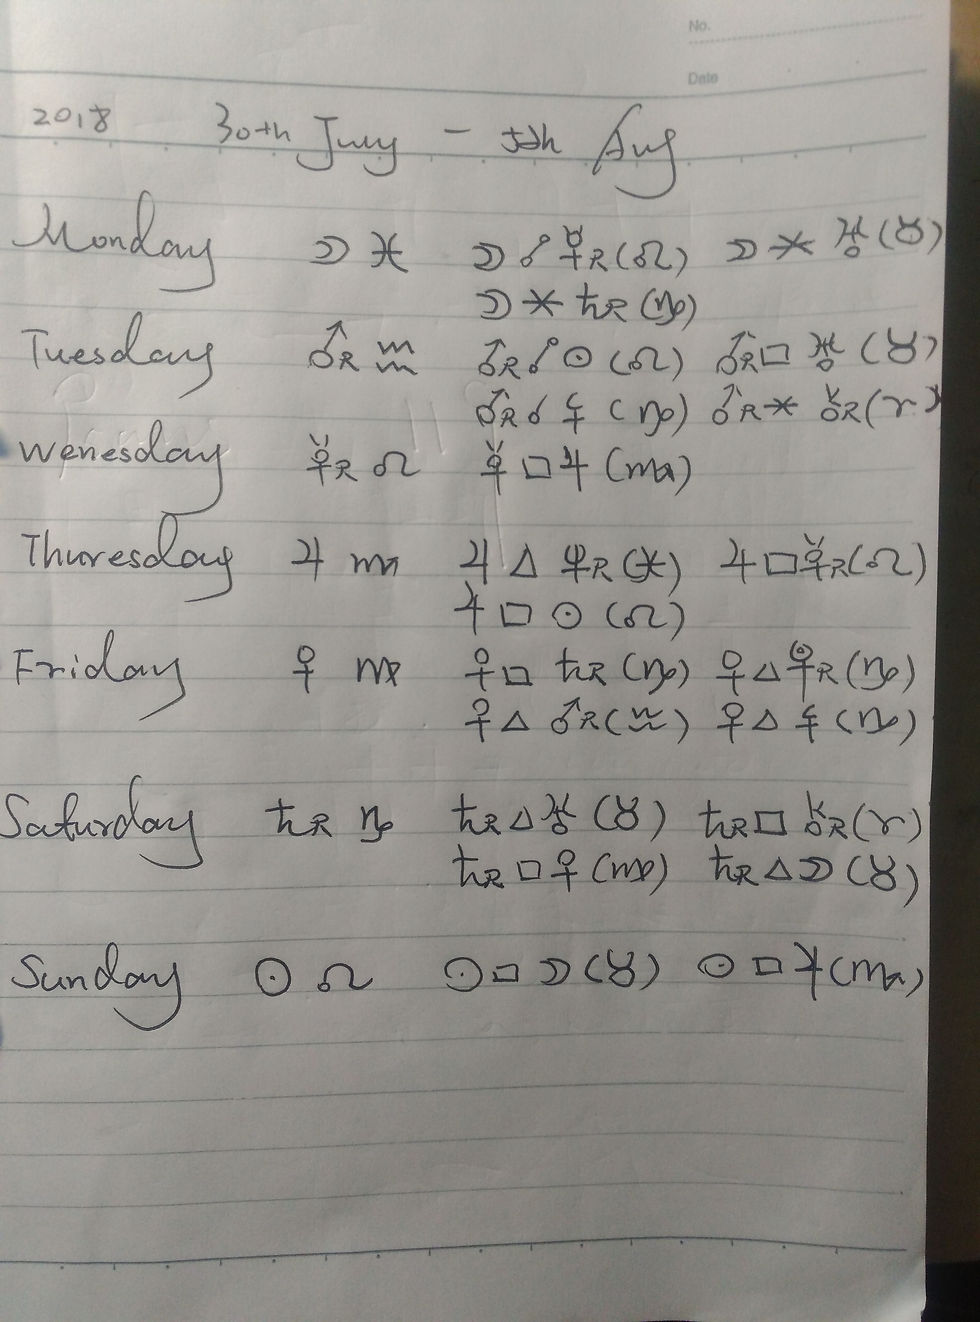 No.
Date
2018 30th July - 5th Aug
Monday ☽ ♓ ☽ ☍ ☿R (♌) ☽ ⚹ ♅ (♉)
☽ ⚹ ♄R (♑)
Tuesday ♂R ♒ ♂R ☍ ☉ (♌) ♂R □ ♅ (♉)
♂R ☌ ⚸ (♑) ♂R ⚹ ⚷R (♈)
Wenesday ☿R ♌ ☿ □ ♃ (♏)
Thuresday ♃ ♏ ♃ △ ♆R (♓) ♃ □ ☿R (♌)
♃ □ ☉ (♌)
Friday ♀ ♍ ♀ □ ♄R (♑) ♀ △ ♇R (♑)
♀ △ ♂R (♒) ♀ △ ⚸ (♑)
Saturday ♄R ♑ ♄R △ ♅ (♉) ♄R □ ⚷R (♈)
♄R □ ♀ (♍) ♄R △ ☽ (♉)
Sunday ☉ ♌ ☉ □ ☽ (♉) ☉ □ ♃ (♏)